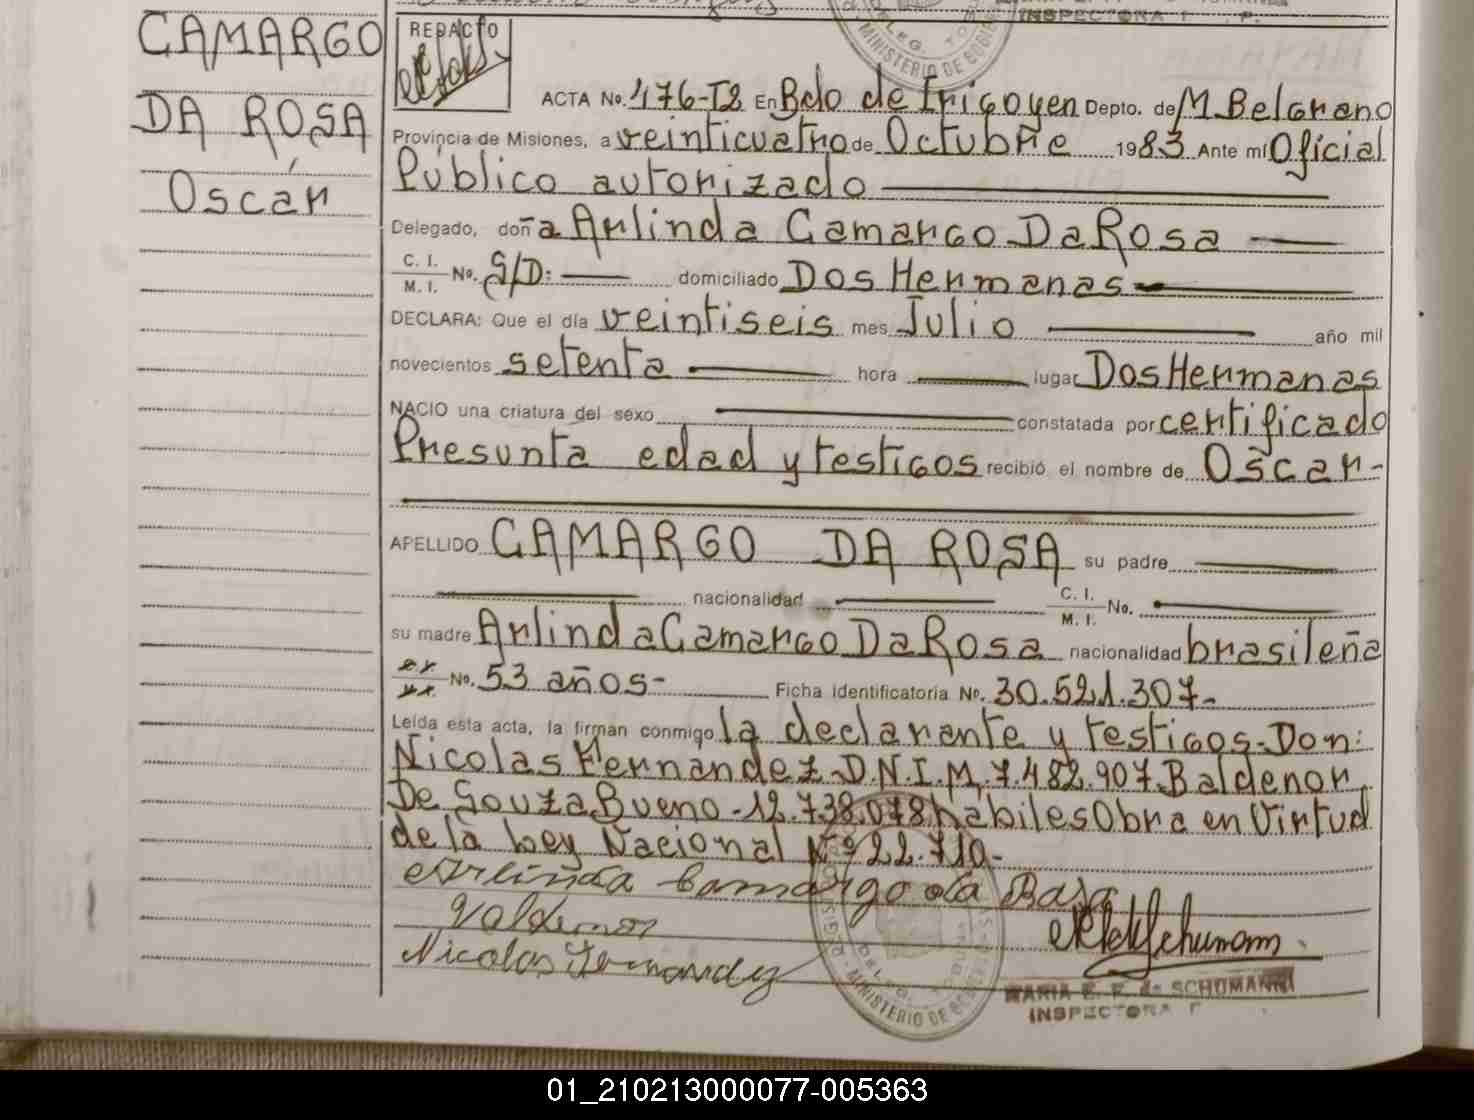 CAMARGO
DA ROSA
Oscar
REDACTO
INSPECTORA
MINISTERIO DE GOBIE
ACTA No. 476-T2 En Bdo de Irigoyen Depto. de M. Belgrano
Provincia de Misiones, a veinticuatro de Octubre 1983 Ante mí Oficial
Público autorizado
Delegado, doña Arlinda Camargo Da Rosa
C. I.
M. I. No. S/D: domiciliado Dos Hermanas
DECLARA: Que el día veintiseis mes Julio año mil
novecientos setenta hora lugar Dos Hermanas
NACIO una criatura del sexo constatada por certificado
Presunta edad y testigos recibió el nombre de Oscar-
APELLIDO CAMARGO DA ROSA su padre
nacionalidad C. I.
M. I. No.
su madre Arlinda Camargo Da Rosa nacionalidad brasileña
No. 53 años- Ficha identificatoria No. 30.521.307-
Leída esta acta, la firman conmigo la declarante y testigos-Don:
Nicolas Fernandez-D.N.I.M.7.482.907 Baldenor
De Souza Bueno-12.738.078 hábiles Obra en Virtud
de la Ley Nacional Nº 22.710-
Arlinda Camargo da Rosa
Valdemor
Nicolas Fernandez
MINISTERIO DE GOBIE
MARIA E. F. de SCHUMANN
INSPECTORA
01_210213000077-005363